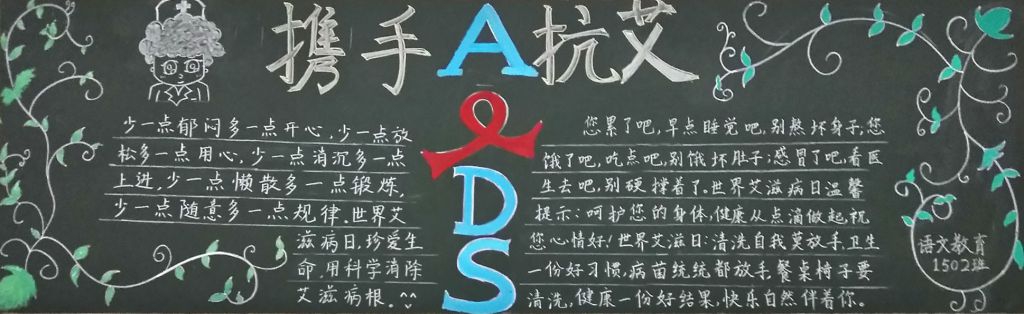 携手抗艾
AIDS
少一点郁闷多一点开心,少一点放
松多一点用心,少一点消沉多一点
上进,少一点懒散多一点锻炼,
少一点随意多一点规律。世界艾
滋病日,珍爱生
命,用科学消除
艾滋病根。^^
您累了吧,早点睡觉吧,别熬坏身子;您
饿了吧,吃点吧,别饿坏肚子;感冒了吧,看医
生去吧,别硬撑着了。世界艾滋病日温馨
提示:呵护您的身体,健康从点滴做起,祝
您心情好!世界艾滋日:清洗自我莫放手,卫生
一份好习惯,病菌统统都放手,餐桌椅子要
清洗,健康一份好结果,快乐自然伴着你。
语文教育
1502班